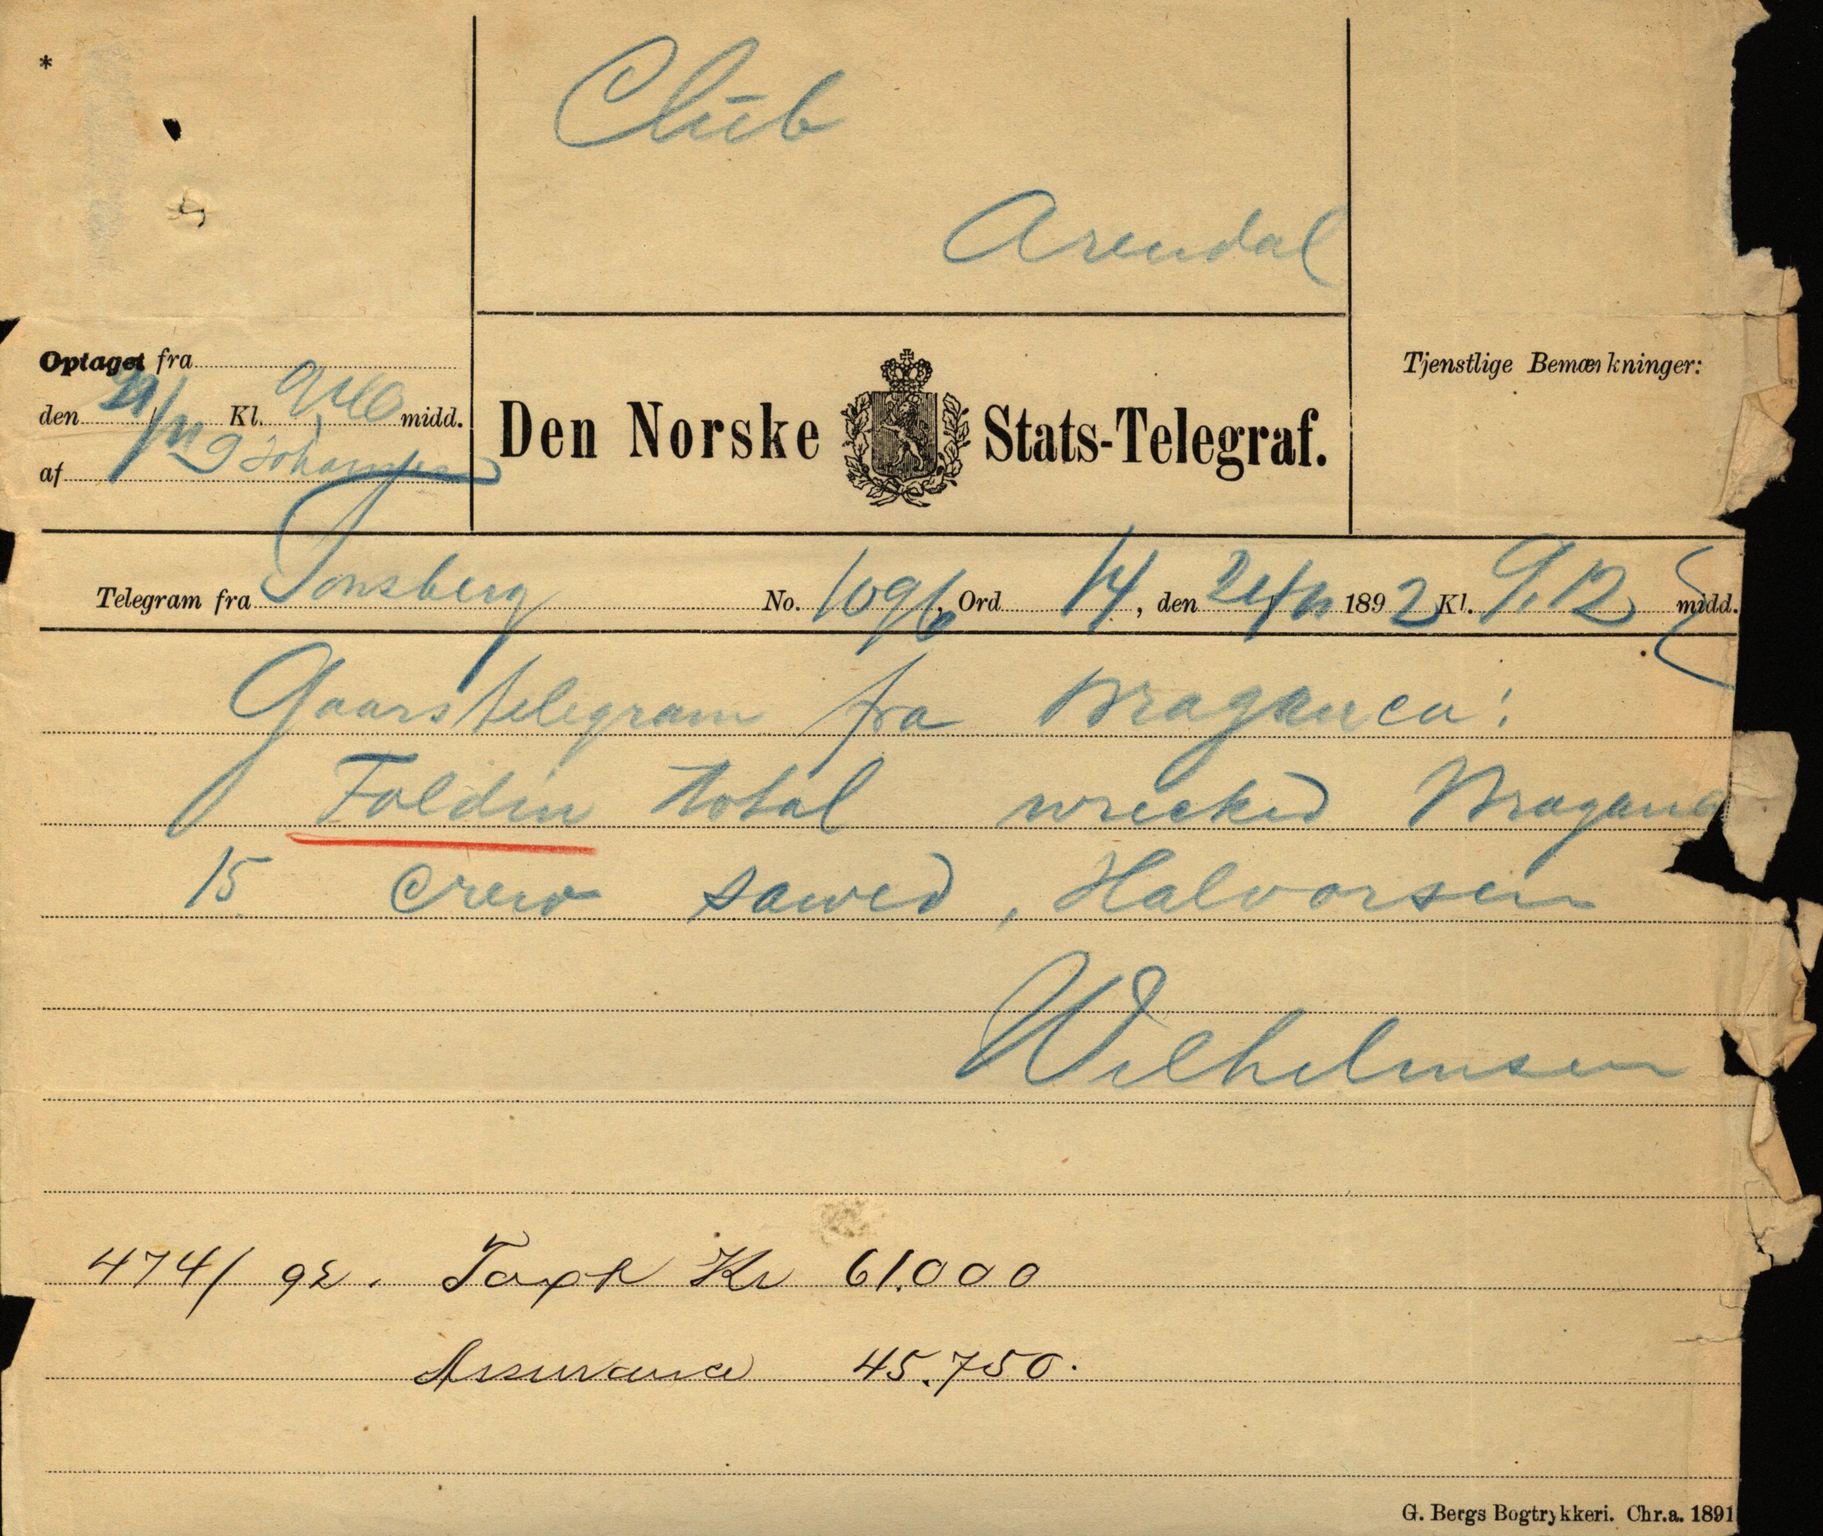 *
Club
Arendal
Optaget fra
den 21/11 Kl. 9 40 midd.
af Johansen
Den Norske Stats-Telegraf.
Tjenstlige Bemærkninger:
Telegram fra Tonsberg No. 1096, Ord 14, den 21/11 1892 Kl. 9.12 midd.
Gaarstelegram fra Braganca:
Foldin total wrecked Bragana
15 crew sawed, Halvorsen
Wilhelmsen
474/92. Taxt Kr 61.000
Assurance 45.750.
G. Bergs Bogtrykkeri. Chr.a. 1891